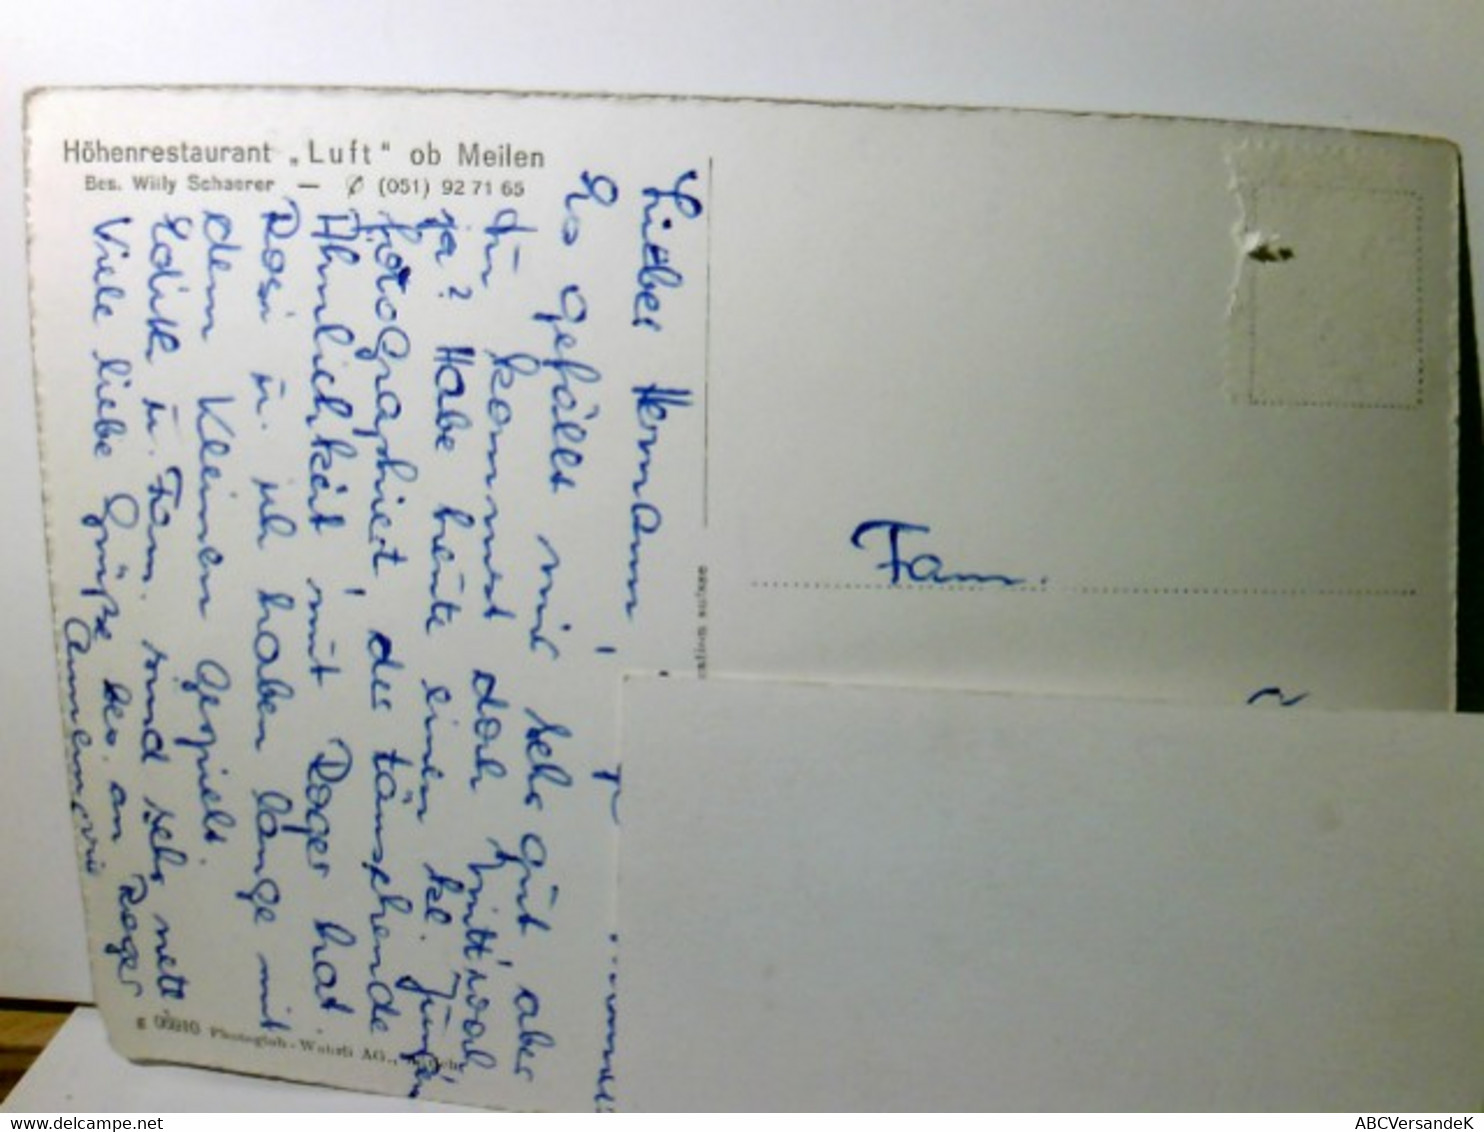 Höhenrestaurant „Luft" ob Meilen
Bes. Willy Schaerer — ✆ (051) 92 71 65
Lieber Hermann!
Es gefällt mir sehr gut, aber
Du kommst doch Mittwoch
ja? Habe heute einen kl. Jungen
fotographiert, der täuschende
Ähnlichkeit mit Roger hat.
Rosi u. ich haben lange mit
dem Kleinen gespielt.
Edith u. Fam. sind sehr nett
Viele liebe Grüße bes. an Roger
Annemarie
Fam.
Photoglob-Wehrli AG.,
ABCVersandeK